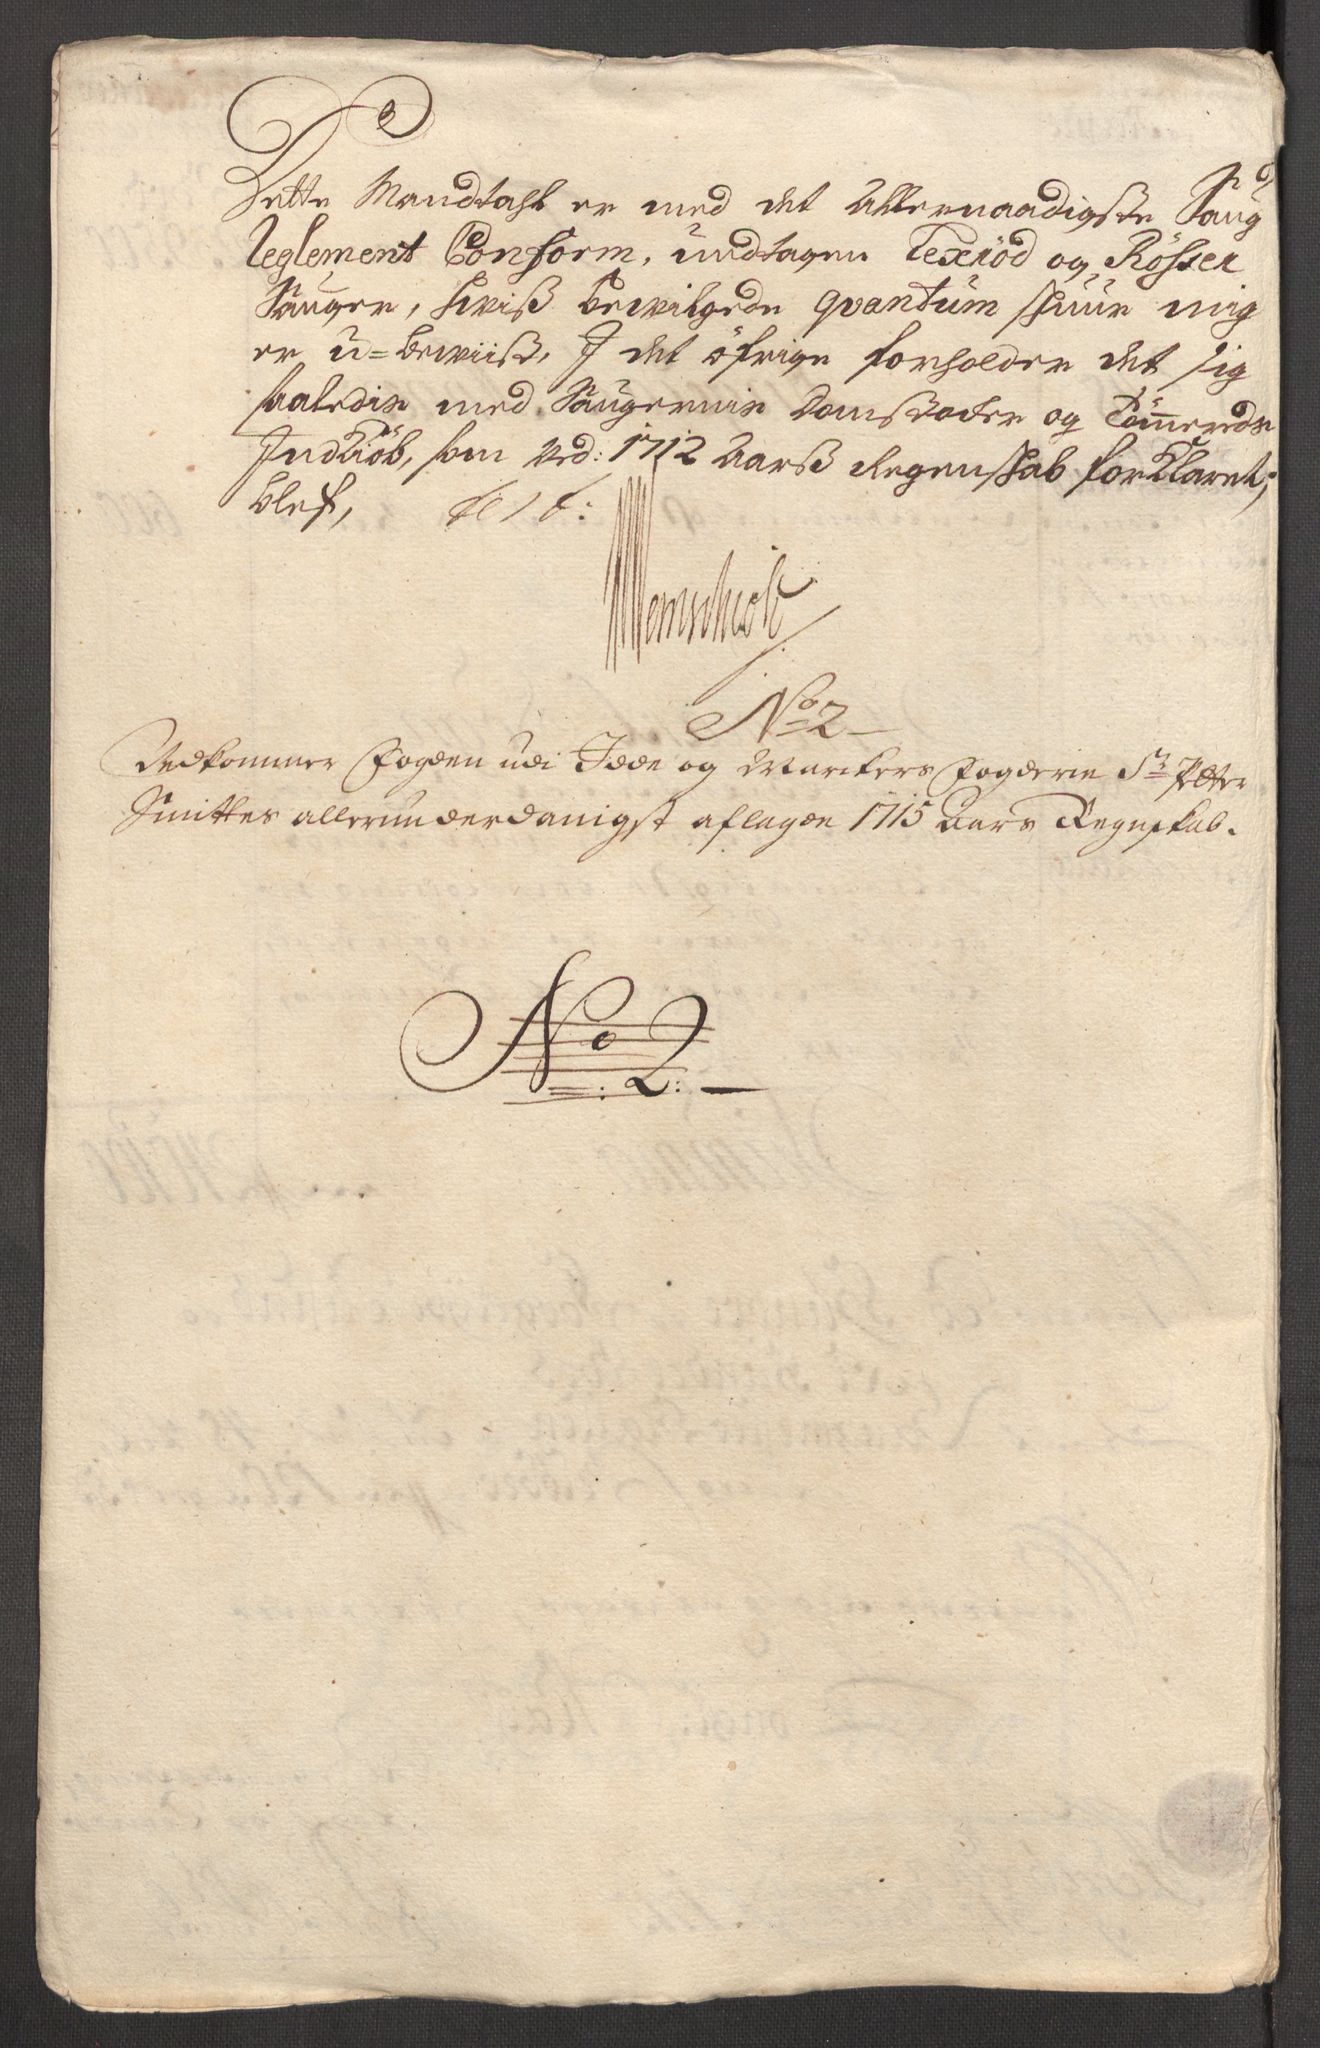 Dette Mandtahl er med det Allernaadigste Saug
Reglement Conform, undtagen Texiöd og Rösser
Sauger, hvis bevilgede qvantum skuur mig
er u=beviist, I det öfrige forholder det sig
saaledis med Saugernis Damstocker og Tömmerds
Indkiöb, som ved: 1712 Aars Regenskab forklaret,
blef,
No 2
Vedkommer Fogden udi Idde og Marckers Fogderie Sr Petter
Smittes allerunderdanigst aflagde 1715 Aars Regnskab.
No 2